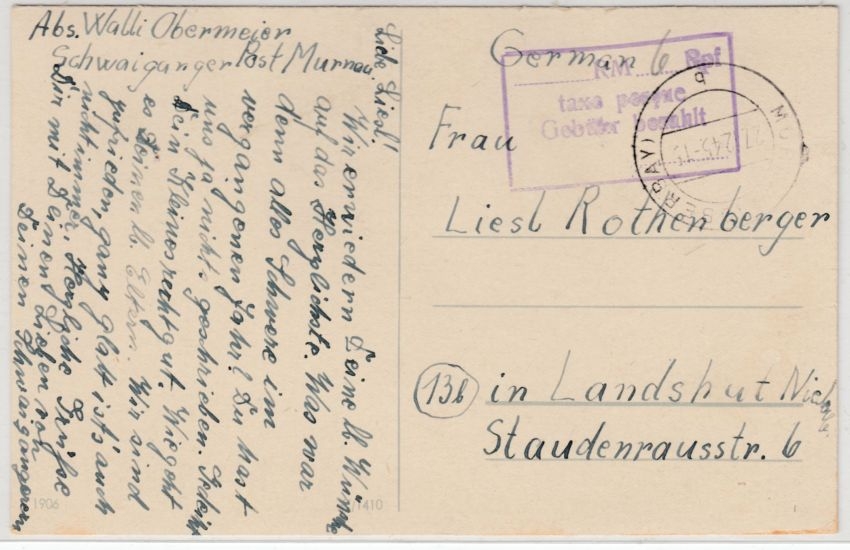 Abs. Walli Obermeier
Schwaiganger Post Murnau.
Liebe Liesl!
Wir erwiedern Deine lb. Wünsche
auf das Herzlichste. Was war
denn alles Schwere im
vergangenen Jahr? Du hast
uns ja nichts geschrieben.
Dein Kleines recht gut. Wie geht
es Deinen lb. Eltern. Wir sind
zufrieden, ganz glatt ist's auch
nicht immer. Herzliche Grüße
Dir mit Deinen Lieben von
Deinen Schwaigangerern
1906
/1410
German
RM 6 Rpf
taxe perçue
Gebühr bezahlt
Frau
Liesl Rothenberger
(13b) in Landshut
Staudenrausstr. 6